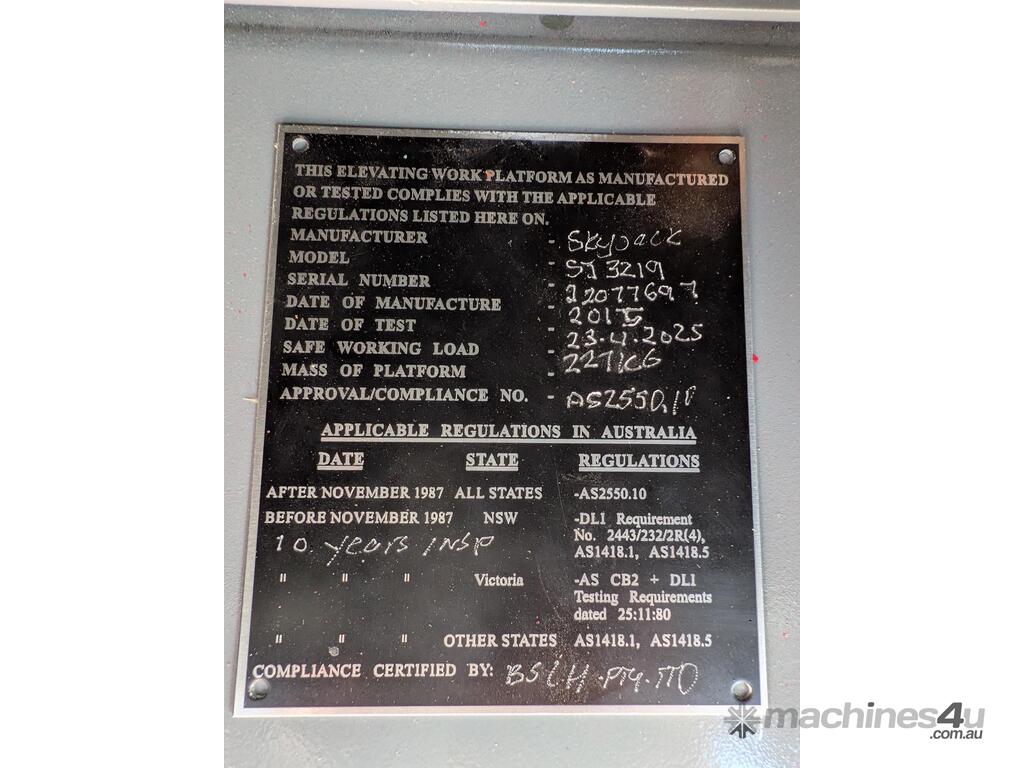 THIS ELEVATING WORK PLATFORM AS MANUFACTURED
OR TESTED COMPLIES WITH THE APPLICABLE
REGULATIONS LISTED HERE ON.
MANUFACTURER - SKYJACK
MODEL - SJ 3219
SERIAL NUMBER - 22077697
DATE OF MANUFACTURE - 2015
DATE OF TEST - 23.4.2025
SAFE WORKING LOAD - 227KG
MASS OF PLATFORM -
APPROVAL/COMPLIANCE NO. - AS2550.10
APPLICABLE REGULATIONS IN AUSTRALIA
DATE STATE REGULATIONS
AFTER NOVEMBER 1987 ALL STATES -AS2550.10
BEFORE NOVEMBER 1987 NSW -DL1 Requirement
No. 2443/232/2R(4),
10 years INSP AS1418.1, AS1418.5
" " " Victoria -AS CB2 + DL1
Testing Requirements
dated 25:11:80
" " " OTHER STATES AS1418.1, AS1418.5
COMPLIANCE CERTIFIED BY: PTY
machines4u
.com.au